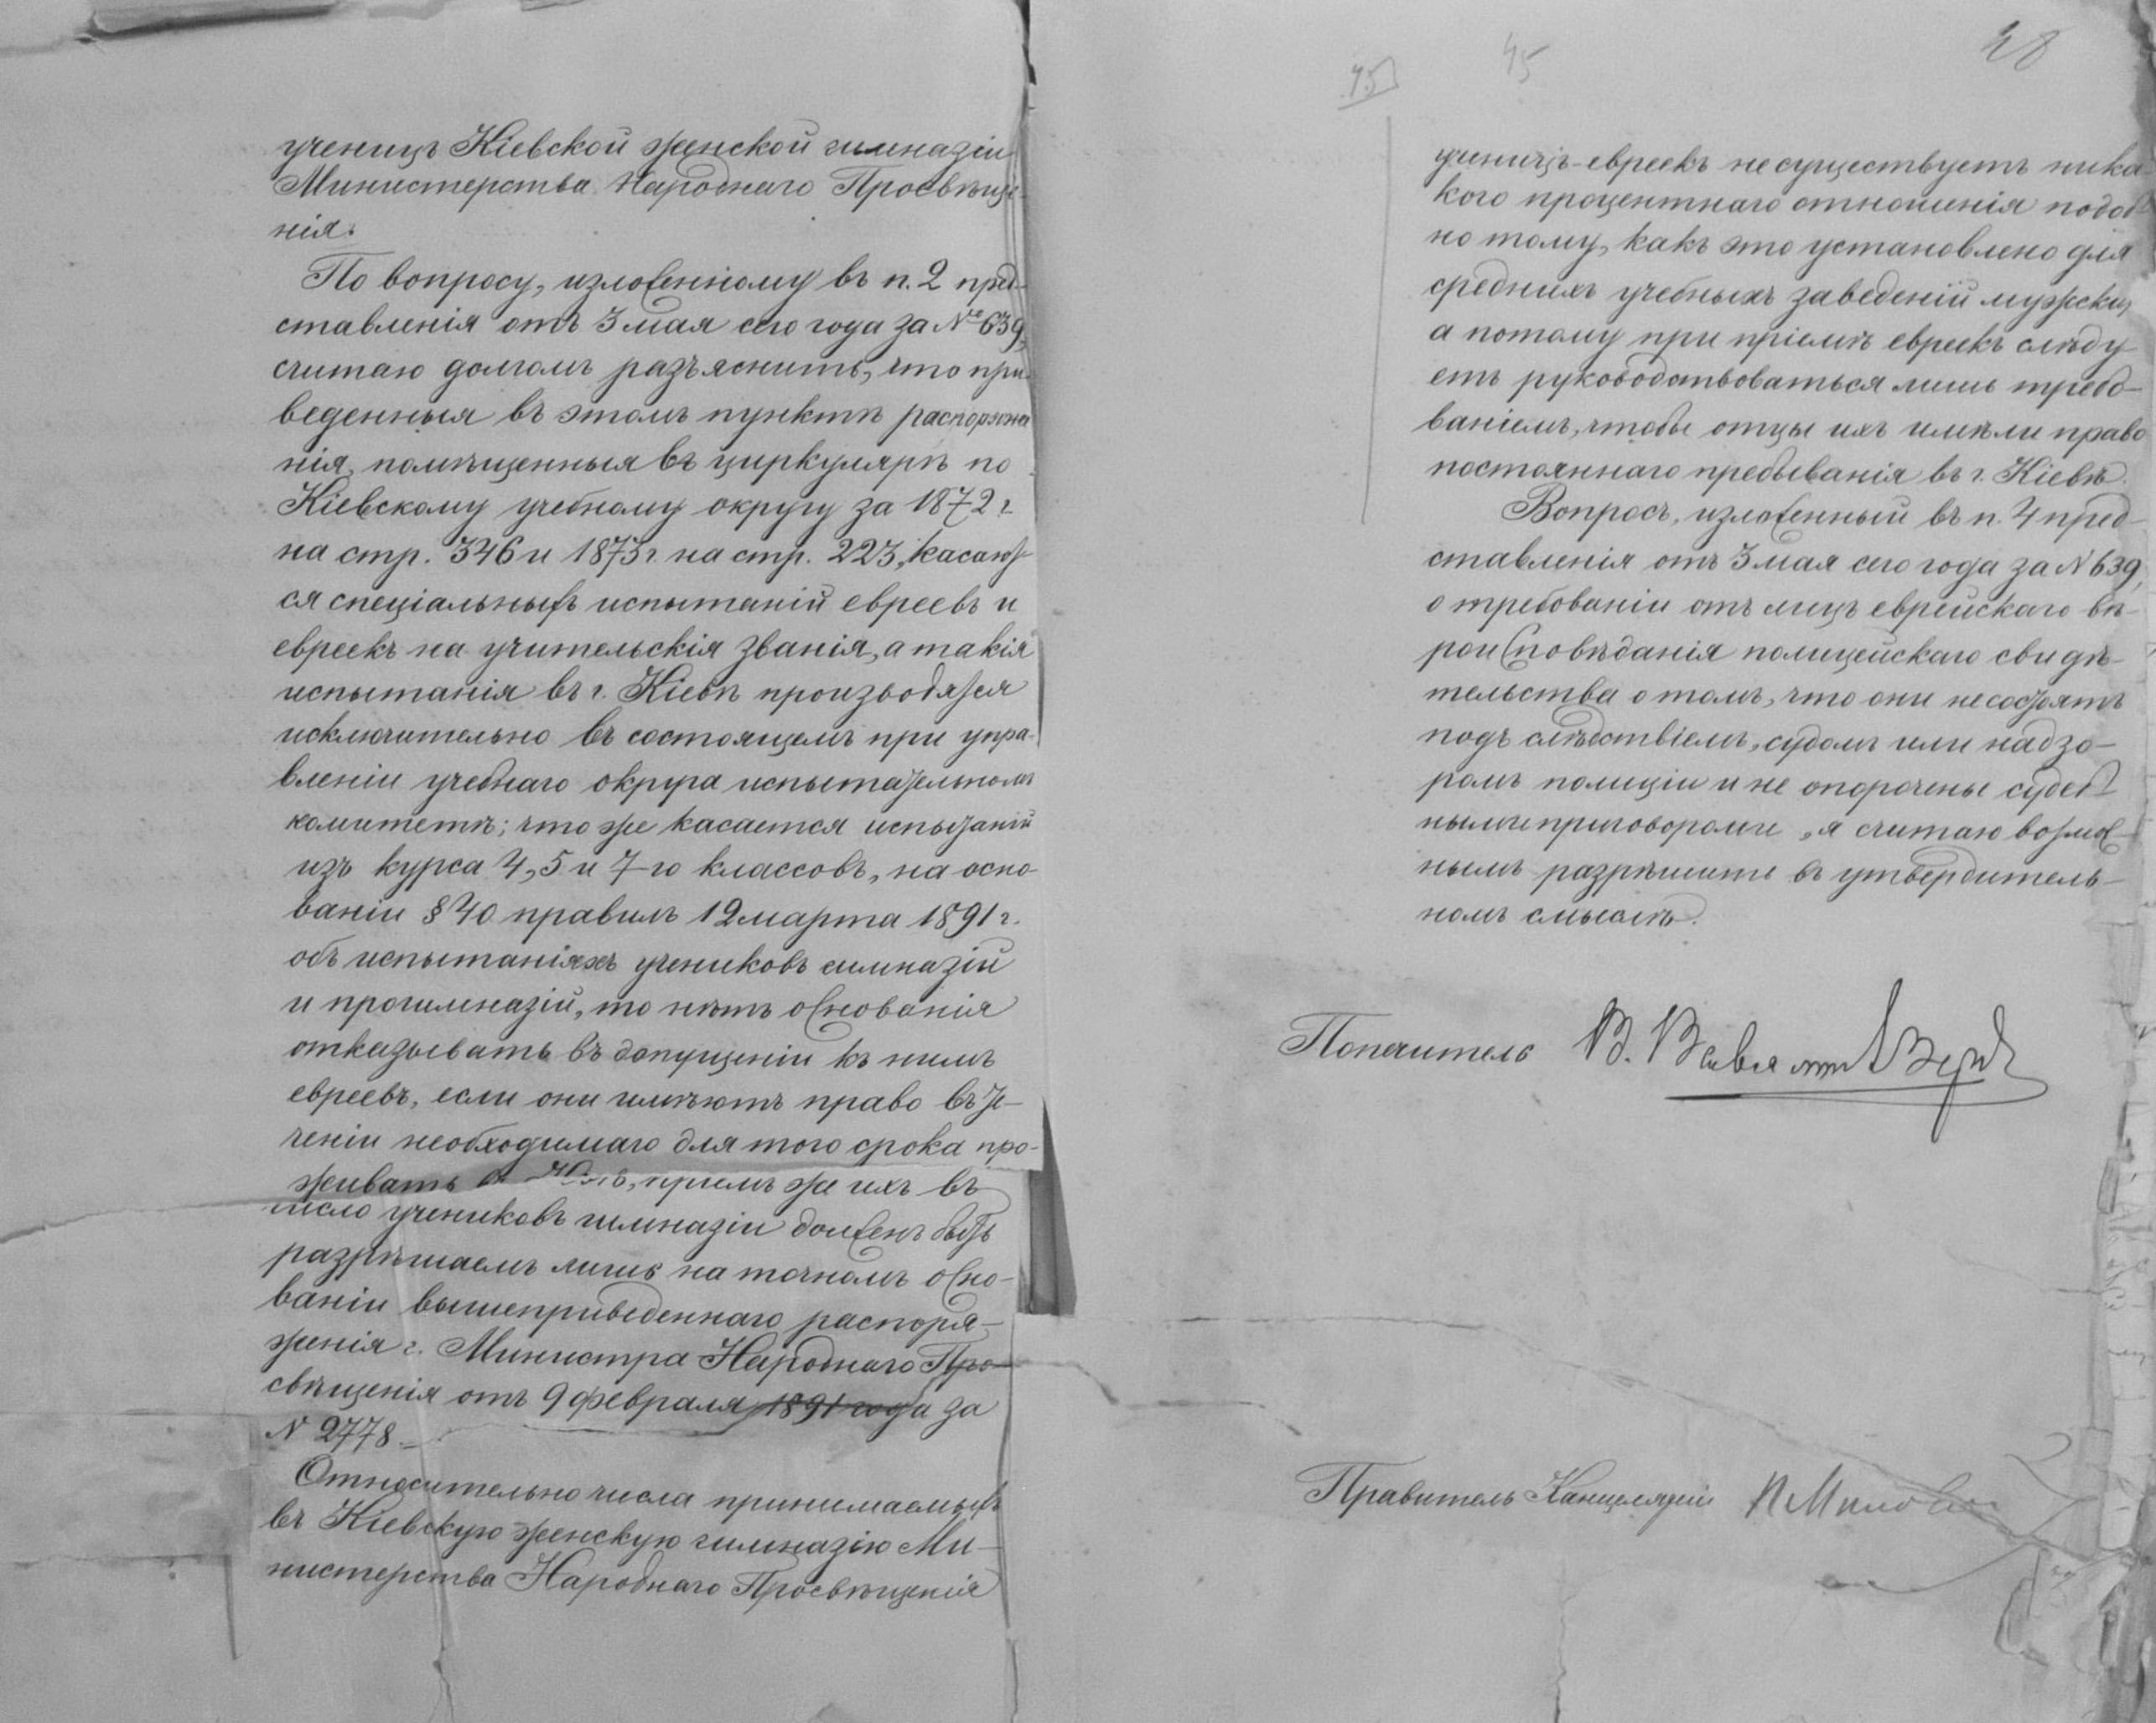 ученицъ Кіевской женской гимназіи
Министерства Народнаго Просвѣще-
нія.
По вопросу, изложенному въ п. 2 пред-
ставленія отъ 3 мая сего года за № 639,
считаю долгомъ разъяснить, что при-
веденныя въ этомъ пунктѣ распоряже
нія, помѣщенныя въ циркулярѣ по
Кіевскому учебному округу за 1872 г.
на стр. 346 и 1873 г. на стр. 223, касают-
ся спеціальныхъ испытаній евреевъ и
евреекъ на учительскія званія, а такія
испытанія въ г. Кіевѣ производятся
исключительно въ состоящемъ при упра-
вленіи учебнаго округа испытательномъ
комитетѣ; что же касается испытаній
изъ курса 4, 5 и 7-го классовъ, на осно-
ваніи § 40 правилъ 12 марта 1891 г.
объ испытаніяхъ учениковъ гимназій
и прогимназій, то нѣтъ основанія
отказывать въ допущеніи къ нимъ
евреевъ, если они имѣютъ право въ те-
ченіи необходимаго для того срока про-
живать въ пріемъ же ихъ въ
число учениковъ гимназіи долженъ быть
разрѣшаемъ лишь на точномъ осно-
ваніи вышеприведеннаго распоря-
женія г. Министра Народнаго Про-
свѣщенія отъ 9 февраля 1891 года за
N 2778.
Относительно числа принимаемыхъ
въ Кіевскую женскую гимназію Ми-
нистерства Народнаго Просвѣщенія
45
45
48
ученицъ-евреекъ не существуетъ ника-
кого процентнаго отношенія подоб-
но тому, какъ это установлено для
среднихъ учебныхъ заведеній мужских,
а потому при пріемѣ евреекъ слѣду-
етъ руководствоваться лишь требо-
ваніемъ, чтобы отцы ихъ имѣли право
постояннаго пребыванія въ г. Кіевѣ.
Вопросъ, изложенный въ п. 4 пред-
ставленія отъ 3 мая сего года за N 639,
о требованіи отъ лицъ еврейскаго вѣ-
роисповѣданія полицейскаго свидѣ-
тельства о томъ, что они не состоятъ
подъ слѣдствіемъ, судомъ или надзо-
ромъ полиціи и не опорочены судеб-
ными приговорами, я считаю возмож-
нымъ разрѣшить въ утвердитель-
номъ смыслѣ.
Попечитель В.
Правитель Канцеляріи